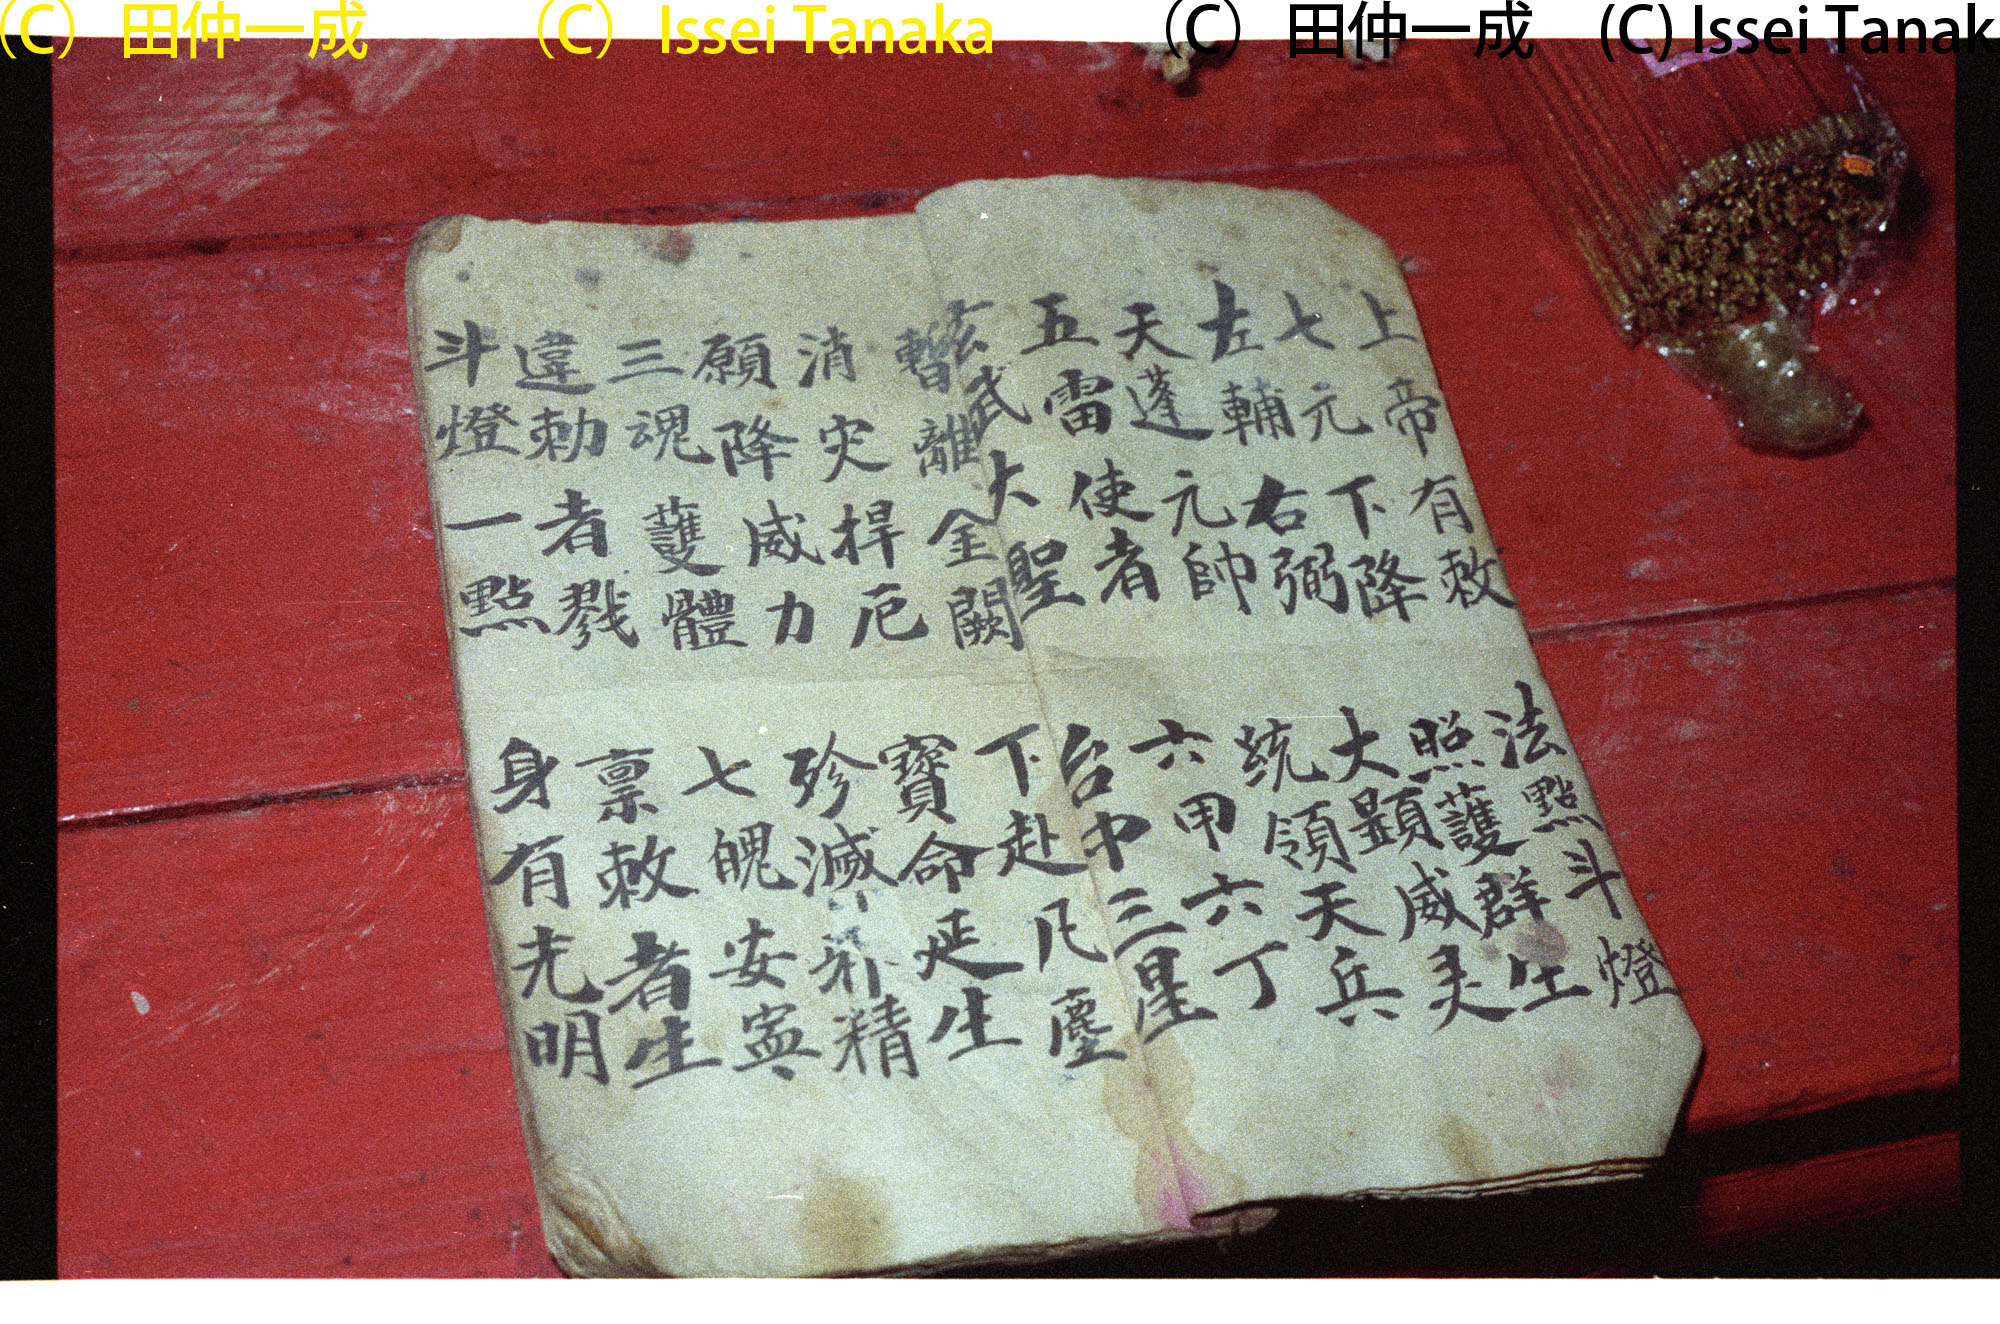 (C) 田仲一成 (C) Issei Tanaka (C) 田仲一成 (C) Issei Tanak
上帝有敕 法點斗燈
七元下降 照護群生
左輔右弼 大顯威灵
天蓬元帥 統領天兵
五雷使者 六甲六丁
玄武大聖 台中三星
暫離金闕 下赴凡塵
消灾捍厄 寶命延生
願降威力 殄滅邪精
三魂護體 七魄安寍
違勅者戮 禀敕者生
斗燈一點 身有光明